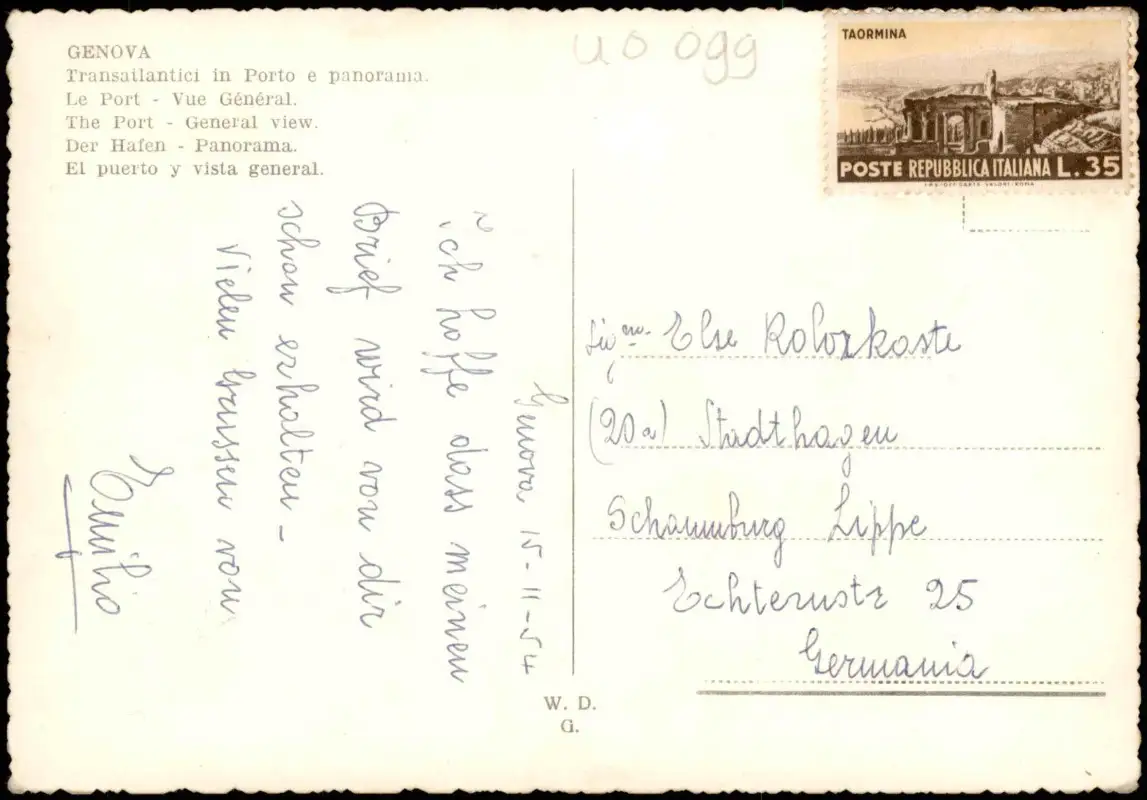 GENOVA
Transatlantici in Porto e panorama.
Le Port - Vue Général.
The Port - General view.
Der Hafen - Panorama.
El puerto y vista general.
uo 099
TAORMINA
POSTE REPUBBLICA ITALIANA L. 35
Genova 15-11-54
ich hoffe dass meinen
Brief wird von dir
schon erhalten -
Vielen Grussen von
Emilio
Sig.na Else Kolozkoste
(20a) Stadthagen
Schaumburg Lippe
Echternstr 25
Germania
W. D.
G.